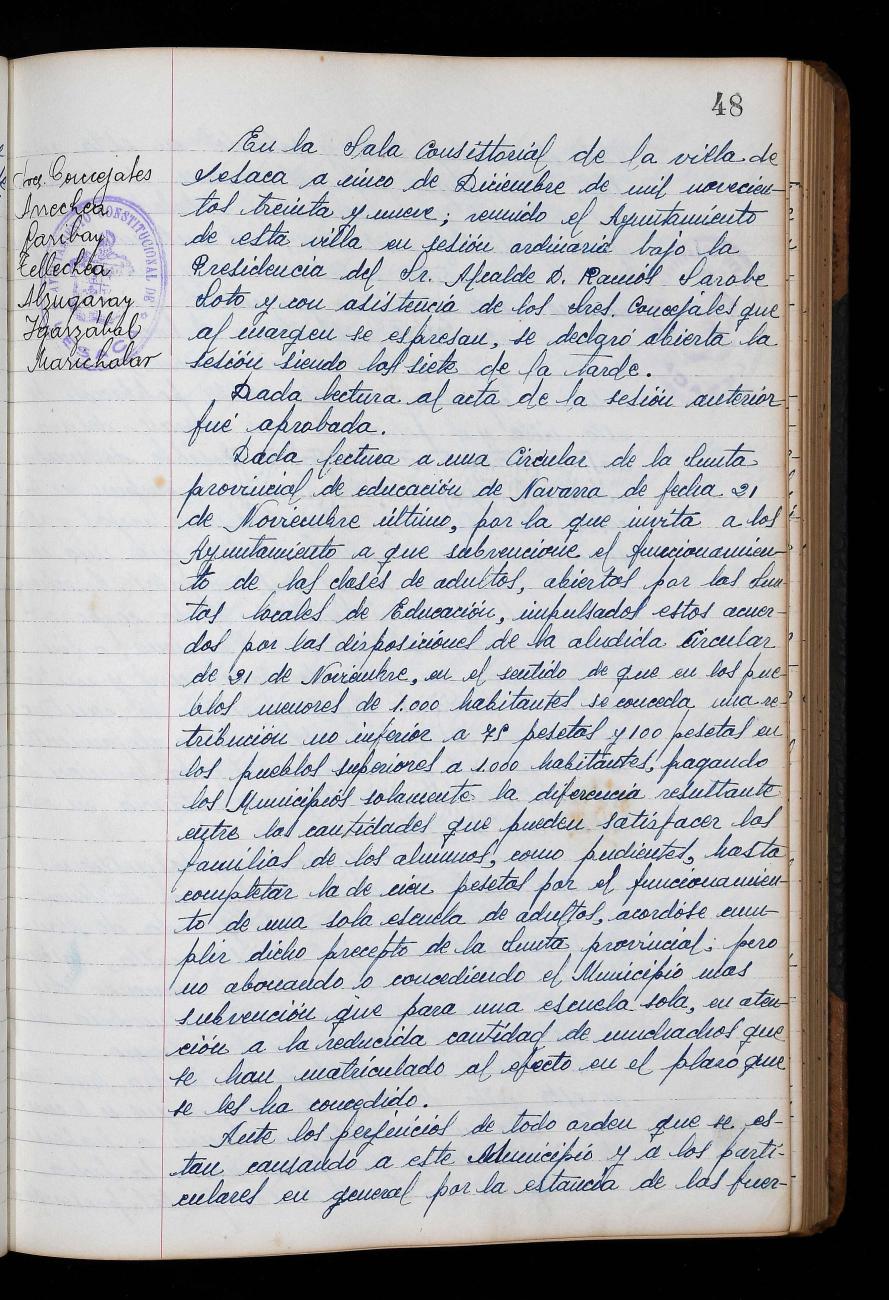 48
Sres. Concejales
Anechea
Garibay
Tellechea
Alzugaray
Igarzabal
Marichalar
AYUNTAMIENTO CONSTITUCIONAL DE
En la Sala Consistorial de la villa de
Lesaca a cinco de Diciembre de mil novecien-
tos treinta y nueve; reunido el Ayuntamiento
de esta villa en sesión ordinaria bajo la
Presidencia del Sr. Alcalde D. Ramón Sarobe
Soto y con asistencia de los Sres. Concejales que
al margen se espresan, se declaró abierta la
sesión siendo las siete de la tarde.
Dada lectura al acta de la sesión anterior
fué aprobada.
Dada lectura a una Circular de la Junta
provincial de educación de Navarra de fecha 21
de Noviembre último, por la que invita a los
Ayuntamiento a que subvencione el funcionamien-
to de las clases de adultos, abiertos por las Jun-
tas locales de Educación, impulsados estos acuer-
dos por las disposiciones de la aludida Circular
de 21 de Noviembre, en el sentido de que en los pue-
blos menores de 1.000 habitantes se conceda una re-
tribución no inferior a 75 pesetas y 100 pesetas en
los pueblos superiores a 1.000 habitantes, pagando
los Municipios solamente la diferencia resultante
entre la cantidades que pueden satisfacer las
familias de los alumnos, como pudientes, hasta
completar la de cien pesetas por el funcionamien-
to de una sola escuela de adultos, acordóse cum-
plir dicho precepto de la Junta provincial; pero
no abonando o concediendo el Municipio mas
subvención que para una escuela sola, en aten-
ción a la reducida cantidad de muchachos que
se han matriculado al efecto en el plazo que
se les ha concedido.
Ante los perjuicios de todo orden que se es-
tan causando a este Municipio y a los parti-
culares en general por la estancia de las fuer-